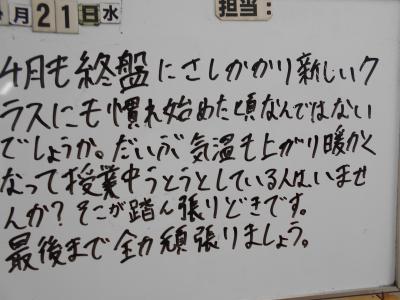 月21日水
担当:
4月も終盤にさしかかり新しいク
ラスにも慣れ始めた頃なんではない
でしょうか。だいぶ気温も上がり暖かく
なって授業中うとうとしている人はいませ
んか?そこが踏ん張りどきです。
最後まで全力頑張りましょう。